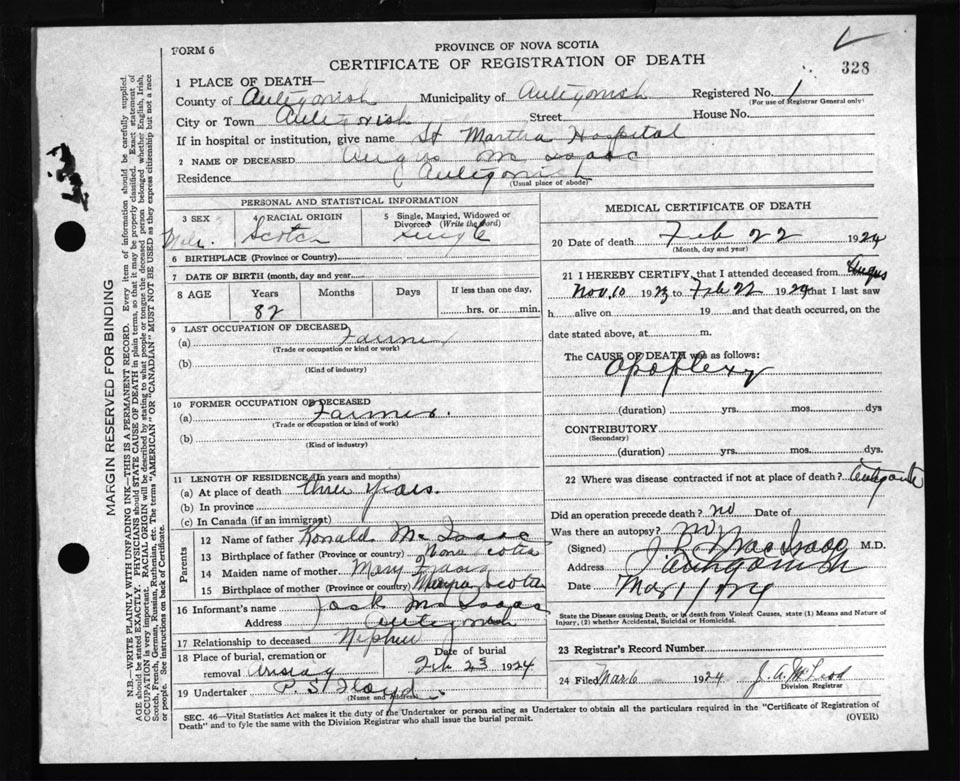 FORM 6
PROVINCE OF NOVA SCOTIA
CERTIFICATE OF REGISTRATION OF DEATH
328
1 PLACE OF DEATH—
County of Antigonish Municipality of Antigonish Registered No. 1
(For use of Registrar General only)
City or Town Antigonish Street House No.
If in hospital or institution, give name St Martha Hospital
2 NAME OF DECEASED Angus Mc Isaac
Residence Antigonish
(Usual place of abode)
PERSONAL AND STATISTICAL INFORMATION
3 SEX Male.
4 RACIAL ORIGIN Scotch
5 Single, Married, Widowed or Divorced (Write the word) single
6 BIRTHPLACE (Province or Country)
7 DATE OF BIRTH (month, day and year)
8 AGE Years Months Days If less than one day,
82 hrs. or min.
9 LAST OCCUPATION OF DECEASED
(a) Farmer
(Trade or occupation or kind or work)
(b)
(Kind of industry)
10 FORMER OCCUPATION OF DECEASED
(a) Farmer.
(Trade or occupation or kind of work)
(b)
(Kind of industry)
11 LENGTH OF RESIDENCE (In years and months)
(a) At place of death three years.
(b) In province
(c) In Canada (if an immigrant)
Parents
12 Name of father Ronald Mc Isaac
13 Birthplace of father (Province or country) Nova Scotia
14 Maiden name of mother Mary
15 Birthplace of mother (Province or country) Scotia
16 Informant's name Jack Mc Isaac
Address Antigonish
17 Relationship to deceased Nephew
18 Place of burial, cremation or removal Arisaig
Date of burial Feb 23 1924
19 Undertaker P. S. Floyd
(Name and Address)
MEDICAL CERTIFICATE OF DEATH
20 Date of death Feb 22 1924
(Month, day and year)
21 I HEREBY CERTIFY, that I attended deceased from Angus
Nov. 10 1923 to Feb 22 1924 that I last saw
h alive on 19 and that death occurred, on the
date stated above, at m.
The CAUSE OF DEATH was as follows:
Apoplexy
(duration) yrs. mos. dys
CONTRIBUTORY
(Secondary)
(duration) yrs. mos. dys.
22 Where was disease contracted if not at place of death? Antigonish
Did an operation precede death? no Date of
Was there an autopsy? no
(Signed) MacIsaac M.D.
Address Antigonish
Date Mar 1/24
State the Disease causing Death, or in death from Violent Causes, state (1) Means and Nature of
Injury, (2) whether Accidental, Suicidal or Homicidal.
23 Registrar's Record Number
24 Filed Mar 6 1924 J. A. McLeod
Division Registrar
SEC. 46—Vital Statistics Act makes it the duty of the Undertaker or person acting as Undertaker to obtain all the particulars required in the "Certificate of Registration of
Death" and to fyle the same with the Division Registrar who shall issue the burial permit.
(OVER)
MARGIN RESERVED FOR BINDING
N.B.—WRITE PLAINLY WITH UNFADING INK—THIS IS A PERMANENT RECORD. Every item of information should be carefully supplied.
AGE should be stated EXACTLY. PHYSICIANS should STATE CAUSE OF DEATH in plain terms, so that it may be properly classified. Exact statement of
OCCUPATION is very important. RACIAL ORIGIN will be described by stating to what people or tongue the deceased person belonged whether English, Irish,
Scotch, French, German, Russian, Ruthenian, etc. The terms "AMERICAN" OR "CANADIAN" MUST NOT BE USED as they express citizenship but not a race
or people. See instructions on back of Certificate.